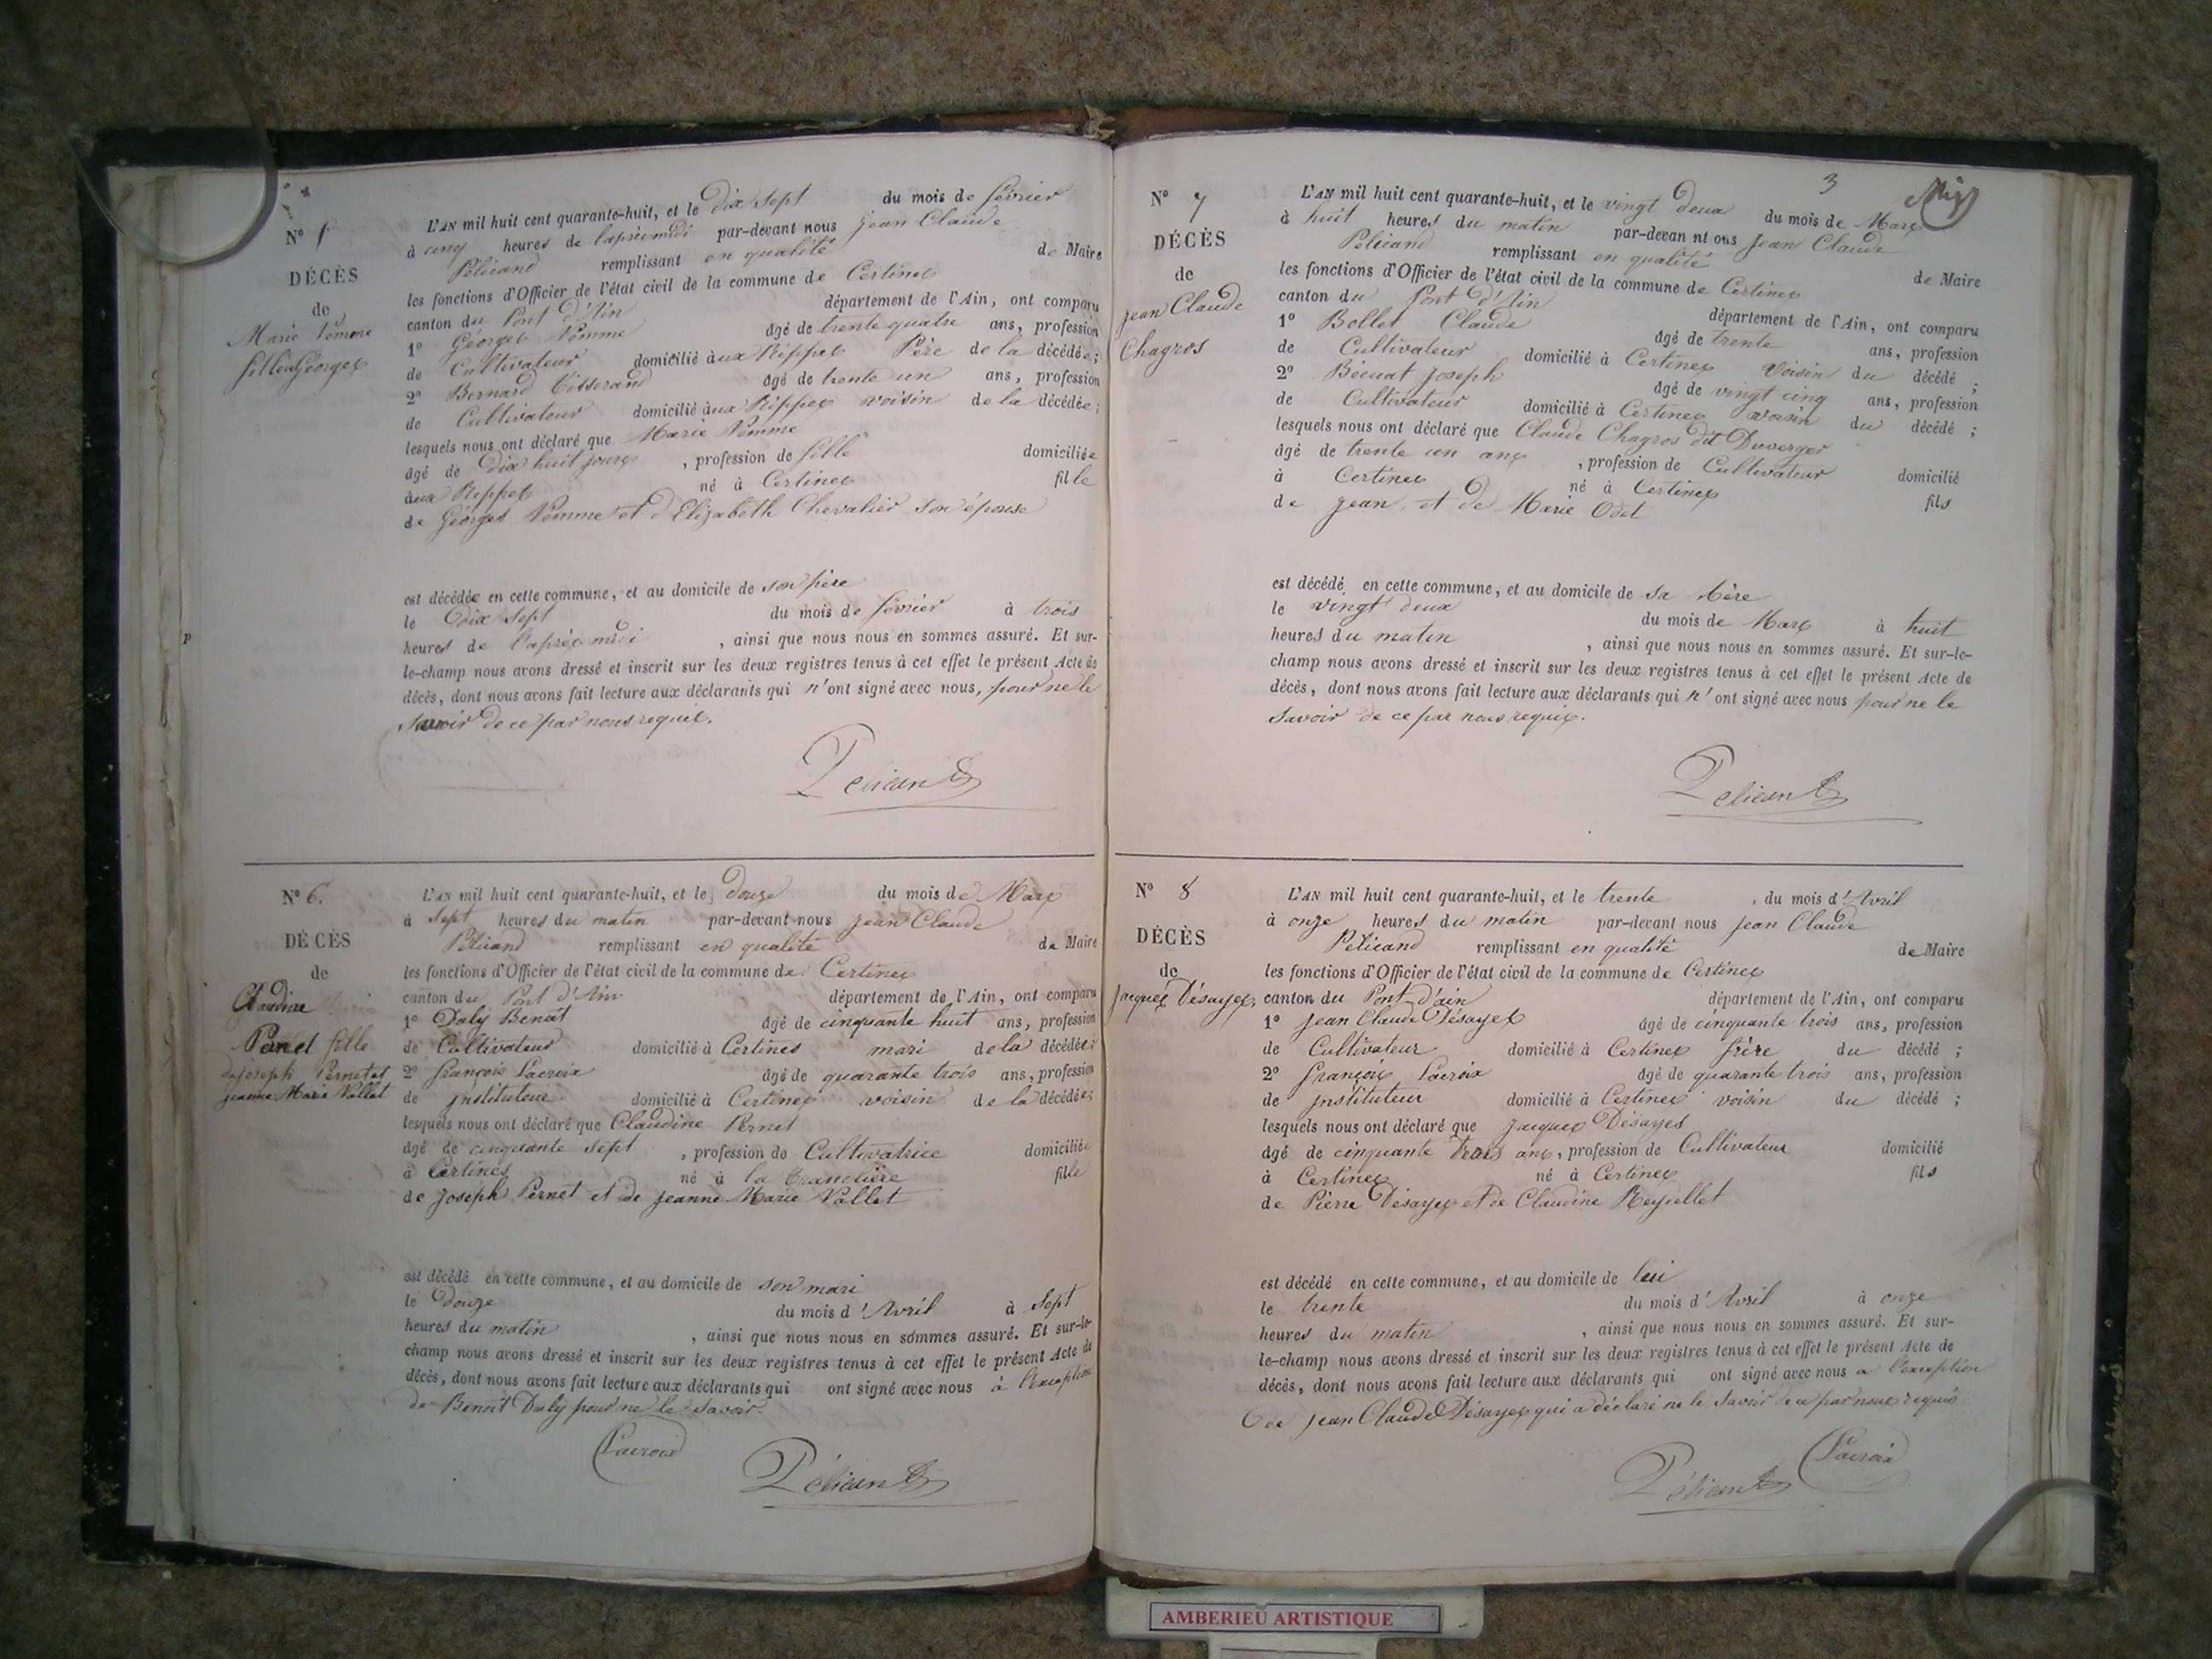 N° 5
DÉCÈS
de
Marie Nomme
fille de Georges
L'AN mil huit cent quarante-huit, et le dix sept du mois de février
à cinq heures de l'après midi par-devant nous Jean Claude
Pélicand remplissant en qualité de Maire
les fonctions d'Officier de l'état civil de la commune de Certines
canton du Pont d'Ain département de l'Ain, ont comparu
1° Georges Nomme âgé de trente quatre ans, profession
de Cultivateur domicilié aux Rippes Père de la décédée;
2° Bernard Tisserand âgé de trente un ans, profession
de Cultivateur domicilié aux Rippes voisin de la décédée;
lesquels nous ont déclaré que Marie Nomme
âgé de dix huit jours, profession de fille domiciliée
aux Rippes né à Certines fille
de Georges Nomme et d'Elizabeth Chevalier son épouse
est décédée en cette commune, et au domicile de son père
le dix sept du mois de février à trois
heures de l'après midi, ainsi que nous nous en sommes assuré. Et sur-
le-champ nous avons dressé et inscrit sur les deux registres tenus à cet effet le présent Acte de
décès, dont nous avons fait lecture aux déclarants qui n'ont signé avec nous, pour ne le
savoir de ce par nous requis.
Pélicand
N° 6.
DÉCÈS
de
Claudine
Pernet fille
de Joseph Pernet et
jeanne Marie Vallet
L'AN mil huit cent quarante-huit, et le douze du mois de Mars
à sept heures du matin par-devant nous Jean Claude
Pélicand remplissant en qualité de Maire
les fonctions d'Officier de l'état civil de la commune de Certines
canton du Pont d'Ain département de l'Ain, ont comparu
1° Daly Benoit âgé de cinquante huit ans, profession
de Cultivateur domicilié à Certines mari de la décédée;
2° françois Lacroix âgé de quarante trois ans, profession
de jnstituteur domicilié à Certines voisin de la décédée;
lesquels nous ont déclaré que Claudine Pernet
âgé de cinquante sept, profession de Cultivatrice domiciliée
à Certines né à la Tranclière fille
de Joseph Pernet et de jeanne Marie Vallet
est décédé en cette commune, et au domicile de son mari
le douze du mois d'Avril à sept
heures du matin, ainsi que nous nous en sommes assuré. Et sur-le-
champ nous avons dressé et inscrit sur les deux registres tenus à cet effet le présent Acte de
décès, dont nous avons fait lecture aux déclarants qui ont signé avec nous à l'exception
de Benoît Daly pour ne le savoir.
Lacroix
Pélicand
3
N° 7
DÉCÈS
de
Jean Claude
Chagros
L'AN mil huit cent quarante-huit, et le vingt deux du mois de Mars
à huit heures du matin par-devan nt ous Jean Claude
Pélicand remplissant en qualité de Maire
les fonctions d'Officier de l'état civil de la commune de Certines
canton du Pont d'Ain département de l'Ain, ont comparu
1° Bollet Claude âgé de trente ans, profession
de Cultivateur domicilié à Certines voisin du décédé;
2° Bécuat Joseph âgé de vingt cinq ans, profession
de Cultivateur domicilié à Certines voisin du décédé;
lesquels nous ont déclaré que Claude Chagros dit Duverger
âgé de trente un ans, profession de Cultivateur domicilié
à Certines né à Certines fils
de jean et de Marie Odet
est décédé en cette commune, et au domicile de sa Mère
le vingt deux du mois de Mars à huit
heures du matin, ainsi que nous nous en sommes assuré. Et sur-le-
champ nous avons dressé et inscrit sur les deux registres tenus à cet effet le présent Acte de
décès, dont nous avons fait lecture aux déclarants qui n'ont signé avec nous pour ne le
savoir de ce par nous requis.
Pélicand
N° 8
DÉCÈS
de
Jacques Désayes
L'AN mil huit cent quarante-huit, et le trente du mois d'Avril
à onze heures du matin par-devant nous Jean Claude
Pélicand remplissant en qualité de Maire
les fonctions d'Officier de l'état civil de la commune de Certines
canton du Pont-d'ain département de l'Ain, ont comparu
1° Jean Claude Désayes âgé de cinquante trois ans, profession
de Cultivateur domicilié à Certines frère du décédé;
2° françois Lacroix âgé de quarante trois ans, profession
de jnstituteur domicilié à Certines voisin du décédé;
lesquels nous ont déclaré que Jacques Désayes
âgé de cinquante ans, profession de Cultivateur domicilié
à Certines né à Certines fils
de Pierre Désayes et de Claudine Reyvellet
est décédé en cette commune, et au domicile de lui
le trente du mois d'Avril à onze
heures du matin, ainsi que nous nous en sommes assuré. Et sur-
le-champ nous avons dressé et inscrit sur les deux registres tenus à cet effet le présent Acte de
décès, dont nous avons fait lecture aux déclarants qui ont signé avec nous a l'exception
de jean Claude Désayes qui a déclaré ne le savoir de ce par nous requis
Lacroix
Pélicand
AMBERIEU ARTISTIQUE